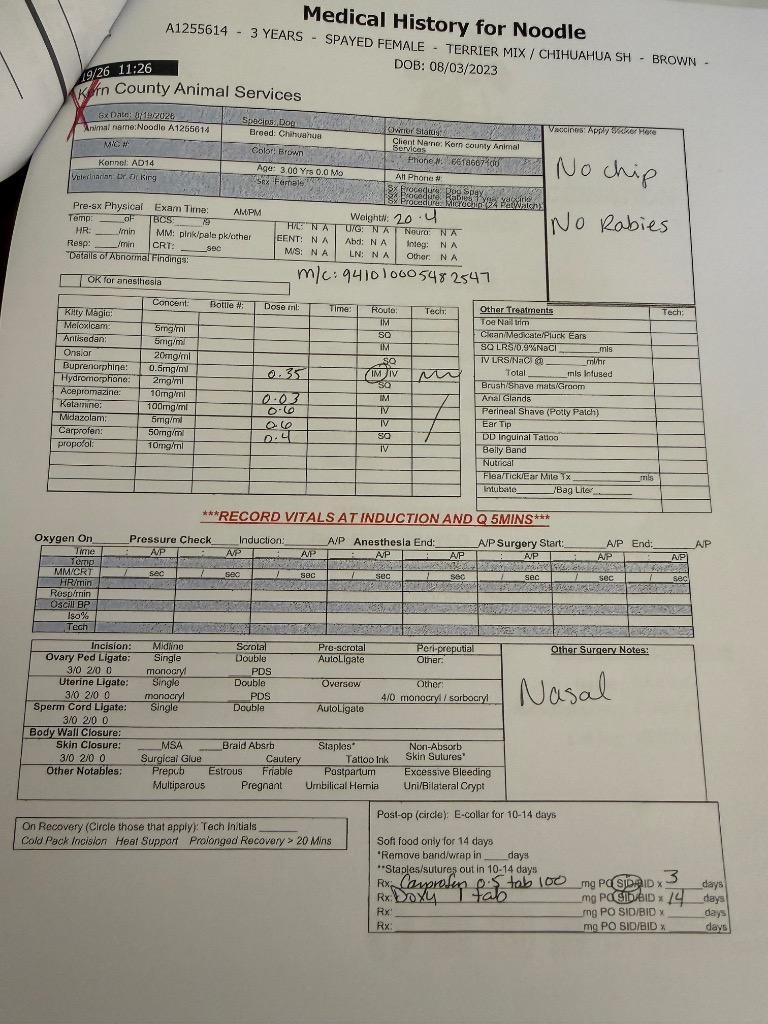 Medical History for Noodle
A1255614 - 3 YEARS - SPAYED FEMALE - TERRIER MIX / CHIHUAHUA SH - BROWN -
DOB: 08/03/2023
19/26 11:26
Kern County Animal Services
Sx Date: 8/19/2026 Species: Dog Owner Status:
Animal name: Noodle A1255614 Breed: Chihuahua Client Name: Kern county Animal Services
M/C #: Color: Brown Phone #: 6618687100
Kennel: AD14 Age: 3.00 Yrs 0.0 Mo Alt Phone #:
Veterinarian: Dr. Dr King Sex: Female Sx Procedure: Dog Spay
Sx Procedure: Rabies 1 year vaccine
Sx Procedure: Microchip (24 PetWatch)
Vaccines: Apply Sticker Here
No chip
No Rabies
Pre-sx Physical Exam Time: AM/PM Weight#: 20.4
Temp: ____oF BCS: ____/9 H/L: N A U/G: N A Neuro: N A
HR: ____/min MM: pink/pale pk/other EENT: N A Abd: N A Integ: N A
Resp: ____/min CRT: ____sec M/S: N A LN: N A Other: N A
*Details of Abnormal Findings:
m/c: 941010005482547
OK for anesthesia
Concent: Bottle #: Dose ml: Time: Route: Tech:
Kitty Magic: IM
Meloxicam: 5mg/ml SQ
Antisedan: 5mg/ml IM
Onsior 20mg/ml SQ
Buprenorphine: 0.5mg/ml 0.35 IM IV
Hydromorphone: 2mg/ml SQ
Acepromazine: 10mg/ml 0.03 IM
Ketamine: 100mg/ml 0.6 IV
Midazolam: 5mg/ml 0.6 IV
Carprofen: 50mg/ml 0.4 SQ
propofol: 10mg/ml IV
Other Treatments Tech:
Toe Nail trim
Clean/Medicate/Pluck Ears
SQ LRS/0.9%NaCl ____mls
IV LRS/NaCl @ ____ml/hr
Total ____mls Infused
Brush/Shave mats/Groom
Anal Glands
Perineal Shave (Potty Patch)
Ear Tip
DD Inguinal Tattoo
Belly Band
Nutrical
Flea/Tick/Ear Mite Tx ____mls
Intubate ____/Bag Liter ____
***RECORD VITALS AT INDUCTION AND Q 5MINS***
Oxygen On____ Pressure Check____ Induction: ____A/P Anesthesia End:____A/P Surgery Start:____A/P End:____A/P
Time : A/P : A/P : A/P : A/P : A/P : A/P : A/P
Temp
MM/CRT / sec / sec / sec / sec / sec / sec / sec
HR/min
Resp/min
Oscill BP
Iso%
Tech
Incision: Midline Scrotal Pre-scrotal Peri-preputial
Ovary Ped Ligate: Single Double AutoLigate Other:
3/0 2/0 0 monocryl ____PDS
Uterine Ligate: Single Double Oversew Other:
3/0 2/0 0 monocryl ____PDS 4/0 monocryl / sorbocryl
Sperm Cord Ligate: Single Double AutoLigate
3/0 2/0 0
Body Wall Closure:
Skin Closure: ____MSA ____Braid Absrb Staples* Non-Absorb
3/0 2/0 0 Surgical Glue Cautery Tattoo Ink Skin Sutures*
Other Notables: Prepub Estrous Friable Postpartum Excessive Bleeding
Multiparous Pregnant Umbilical Hernia Uni/Bilateral Crypt
Other Surgery Notes:
Nasal
On Recovery (Circle those that apply): Tech Initials ____
Cold Pack Incision Heat Support Prolonged Recovery > 20 Mins
Post-op (circle): E-collar for 10-14 days
Soft food only for 14 days
*Remove band/wrap in ____days
**Staples/sutures out in 10-14 days
Rx: Carprofen 0.5 tab 100 mg PO SID/BID x 3 days
Rx: Doxy 1 tab mg PO SID/BID x 14 days
Rx: ____mg PO SID/BID x ____days
Rx: ____mg PO SID/BID x ____days